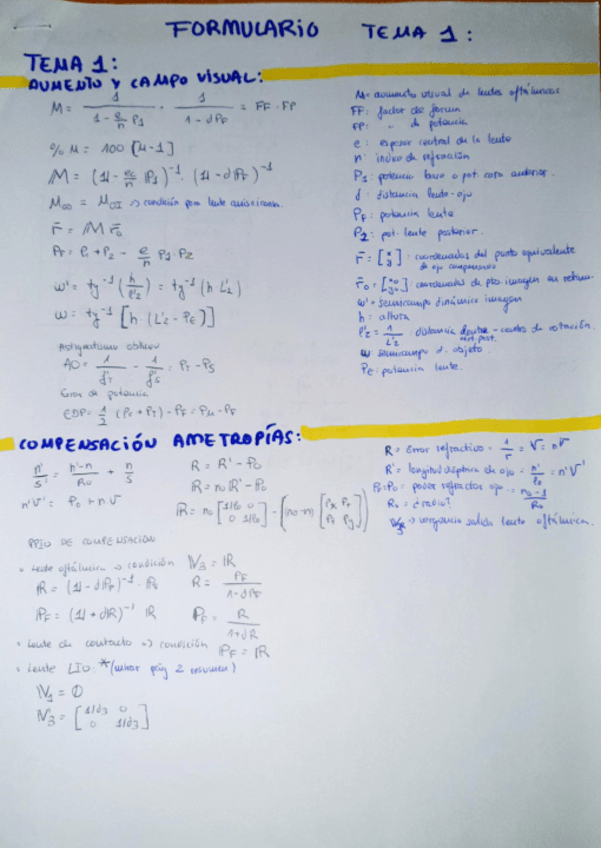 FORMULARIO TEMA 1:
TEMA 1:
AUMENTO Y CAMPO VISUAL:
M = 1 / (1 - e/n P1) · 1 / (1 - dPF) = FF · FP
% M = 100 [M-1]
M = (1 - e/n P1)^-1 · (1 - dPF)^-1
M∞ = MOI => condición para lente
r̄ = M r̄o
PF = P1 + P2 - e/n P1·P2
w' = tg^-1 (h/l'2) = tg^-1 (h L'2)
w = tg^-1 [h · (L'2 - PE)]
Astigmatismo oblicuo
AO = 1/f'T - 1/f'S = PT - PS
Error de potencia
EDP = 1/2 (PS + PT) - PF = PM - PF
M = aumento visual de lentes oftálmicas
FF: factor de forma
FP: " de potencia
e: espesor central de la lente
n: índice de refracción
P1: potencia base o pot. cara anterior.
d: distancia lente-ojo
PF: potencia lente
P2: pot. lente posterior.
r̄ = [x y]: coordenadas del punto equivalente
de ojo compensado
r̄o = [xo yo]: coordenadas de pto. imagen en retina.
w' = semicampo dinámico imagen
h: altura
l'2 = 1/L'2: distancia - centro de rotación.
w semicampo d. objeto.
PE: potencia lente.
COMPENSACIÓN AMETROPÍAS:
n'/s' = (n'-n)/Ro + n/s
n'V' = Po + nV
R = R' - Po
R = no R' - Po
R = no [1/lo 0 0 1/lo] - (no-n) [Px Pt Pt Py]
R = Error refractivo = 1/r = V = nV
R' = longitud óptica de ojo = n'/lo = n'V'
Po = Po = poder refractor ojo = (no-1)/Ro
Ro = ¿radio?
V3 => vergencia salida lente oftálmica.
PPIO DE COMPENSACIÓN
• Lente oftálmica => condición V3 = R
R = (1 - dPF)^-1 · PF R = PF / (1 - dPF)
PF = (1 + dR)^-1 R PF = R / (1 + dR)
• Lente de contacto => condición PF = R
• Lente LIO: *(mirar pág 2 resumen)
V1 = 0
V3 = [1/d3 0 0 1/d3]